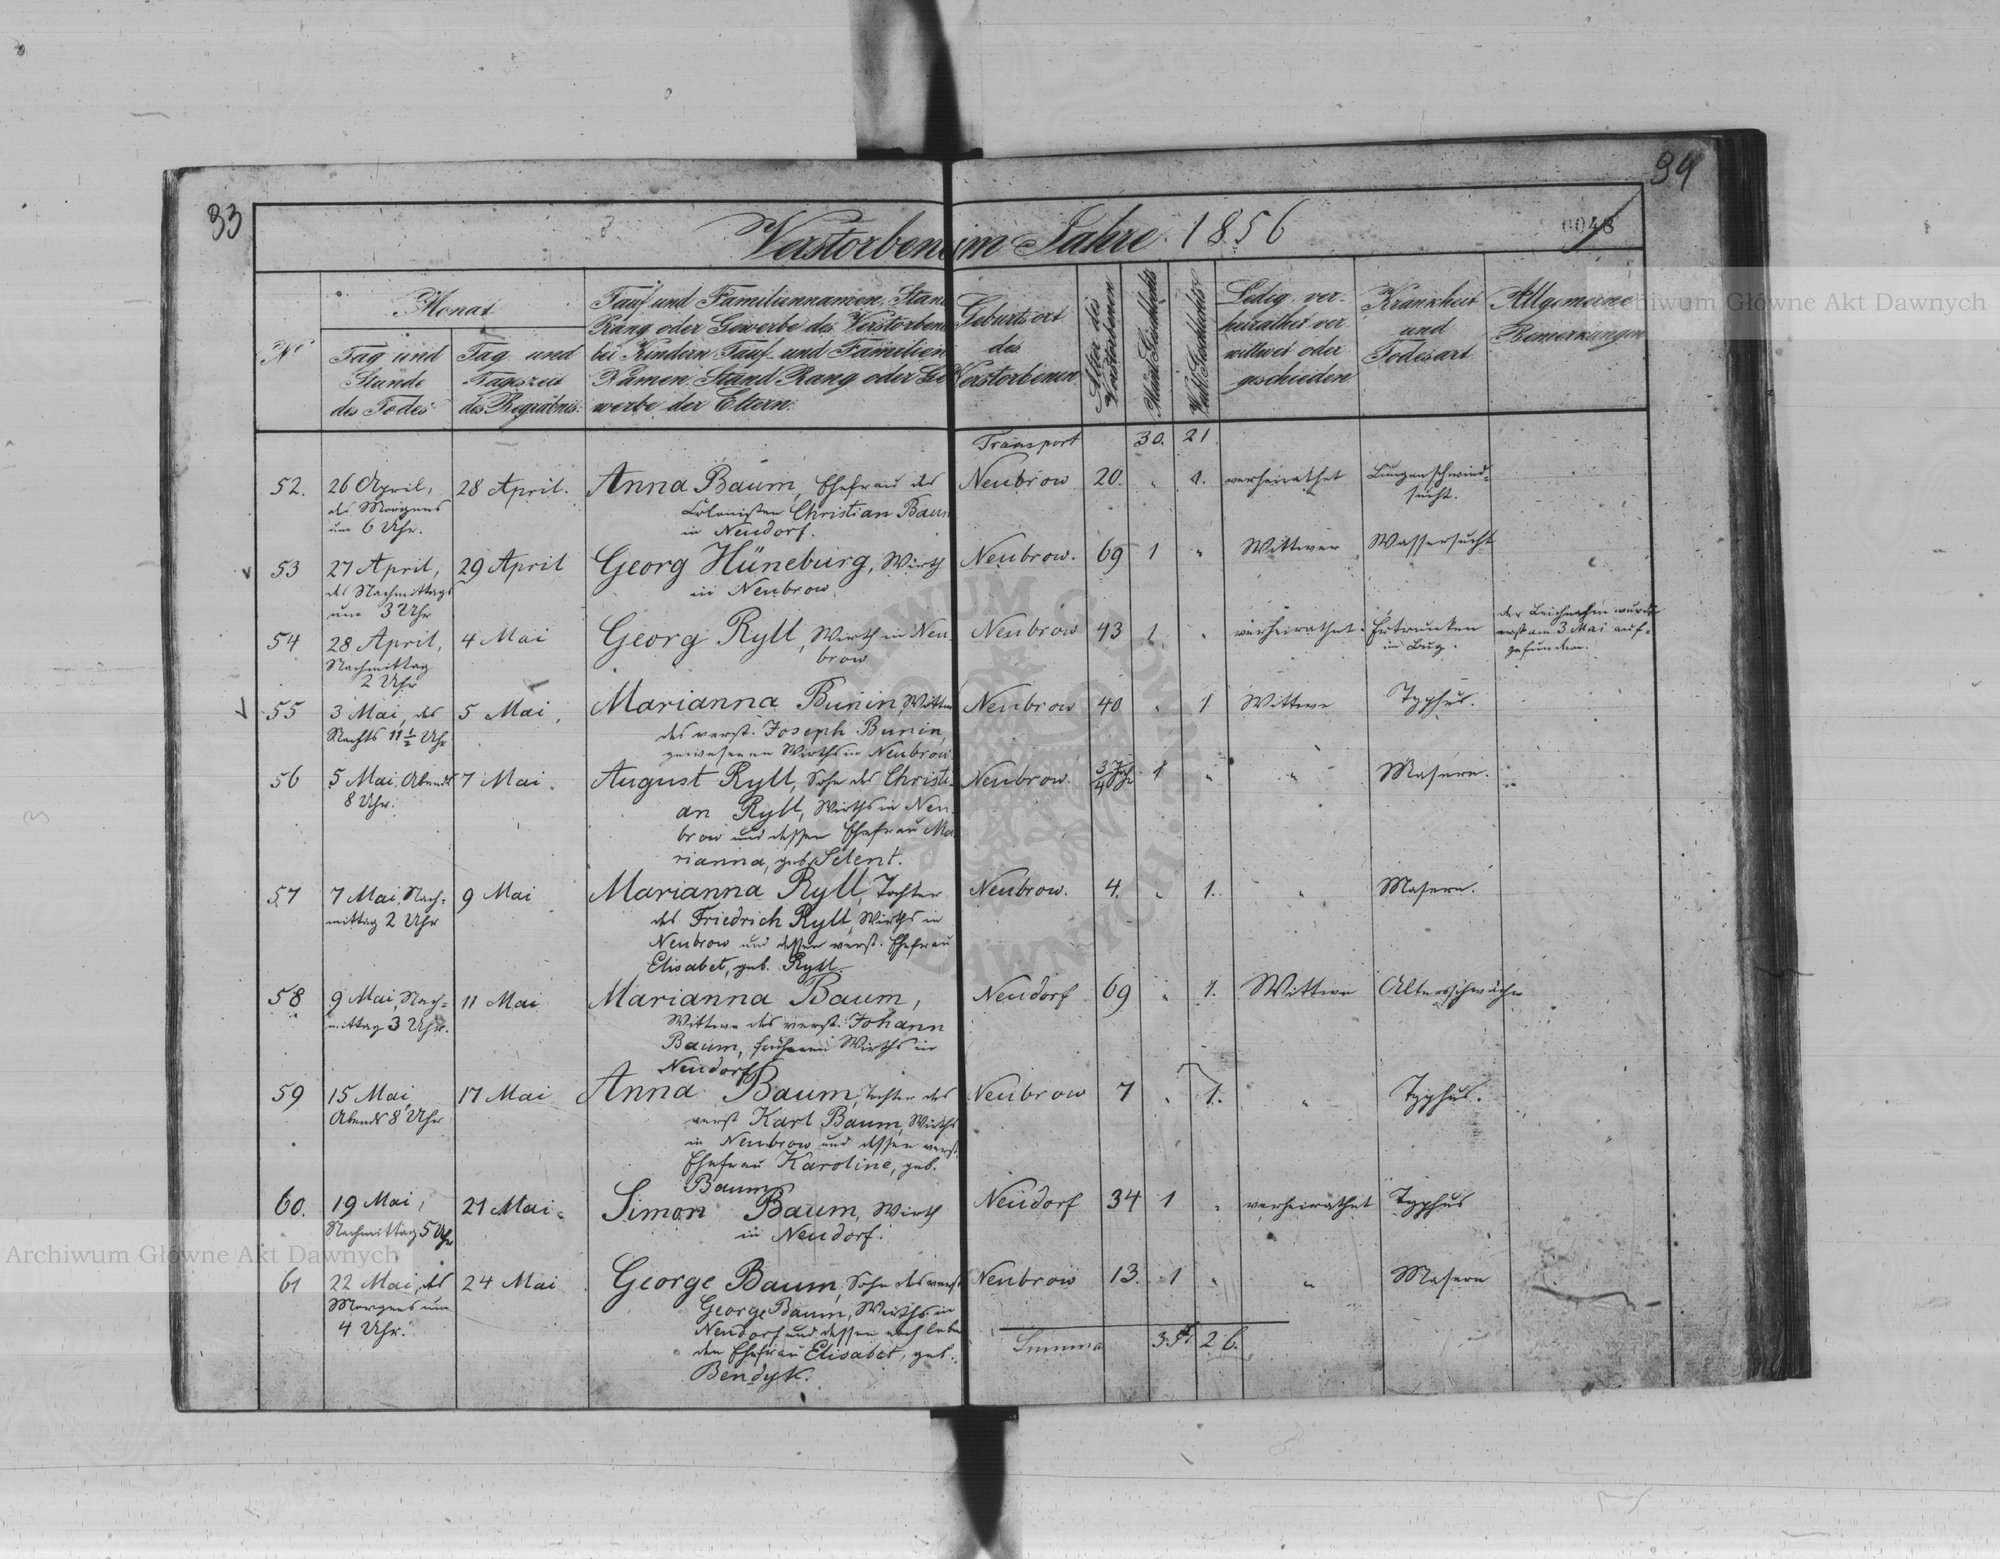 93
94
Verstorbene im Jahre 1856
0048
No
Monat
Tag und
Stunde
des Todes
Tag und
Tageszeit
des Begräbnis.
Tauf und Familiennamen, Stand
Rang oder Gewerbe des Verstorbenen
bei Kindern Tauf und Familien
Namen, Stand Rang oder Ge
werbe der Eltern.
Geburtsort
des
Verstorbenen
Alter des
Verstorbenen
Männl. Geschlechts
Weibl. Geschlechts
Ledig, ver-
heirathet ver
wittwet oder
geschieden
Krankheit
und
Todesart
Allgemeine
Bemerkungen
Transport 30. 21
52. 26 April,
des Morgens
um 6 Uhr.
28 April.
Anna Baum, Ehefrau des
Colonisten Christian Baum
in Neudorf.
Neubrow 20. " 1. verheirathet
Lungenschwind=
sucht.
53 27 April,
des Nachmittags
um 3 Uhr
29 April
Georg Hüneburg, Wirth
in Neubrow.
Neubrow. 69 1 " Wittwer Wassersucht
54 28 April,
Nachmittag
2 Uhr
4 Mai
Georg Ryll, Wirth in Neu
brow
Neubrow 43 1 " verheirathet.
Ertrunken
im Bug.
der Leichnahm wurde
erst am 3 Mai auf=
gefunden.
55 3 Mai, des
Nachts 11 1/2 Uhr
5 Mai,
Marianna Bunin, Wittwe
des verst. Joseph Bunin,
gewesenen Wirths in Neubrow
Neubrow 40 " 1 Wittwe Typhus.
56 5 Mai, Abends
8 Uhr.
7 Mai.
August Ryll, Sohn des Christi
an Ryll, Wirths in Neu
brow und dessen Ehefrau Ma
rianna, geb. Selent.
Neubrow. 3/4 Jahr 1 " " Masern.
57 7 Mai, Nach=
mittag 2 Uhr
9 Mai
Marianna Ryll, Tochter
des Friedrich Ryll, Wirths in
Neubrow und dessen verst. Ehefrau
Elisabet, geb. Ryll.
Neubrow. 4. " 1. " Masern.
58 9 Mai, Nach=
mittag 3 Uhr.
11 Mai
Marianna Baum,
Wittwe des verst. Johann
Baum, früheren Wirths in
Neudorf
Neudorf 69 " 1. Wittwe Altersschwäche
59 15 Mai,
Abends 8 Uhr
17 Mai
Anna Baum, Tochter des
verst Karl Baum, Wirths
in Neubrow und dessen verst.
Ehefrau Karoline, geb.
Baum
Neubrow 7 " 1. " Typhus.
60. 19 Mai,
Nachmittag 5 Uhr
21 Mai.
Simon Baum, Wirth
in Neudorf.
Neudorf 34 1 " verheirathet Typhus
61 22 Mai, des
Morgens um
4 Uhr.
24 Mai
George Baum, Sohn des verst
George Baum, Wirths in
Neudorf und dessen noch leben
den Ehefrau Elisabet, geb.
Bendyk.
Neubrow 13. 1 " " Masern
Summa 35. 26.
Archiwum Główne Akt Dawnych
Archiwum Główne Akt Dawnych